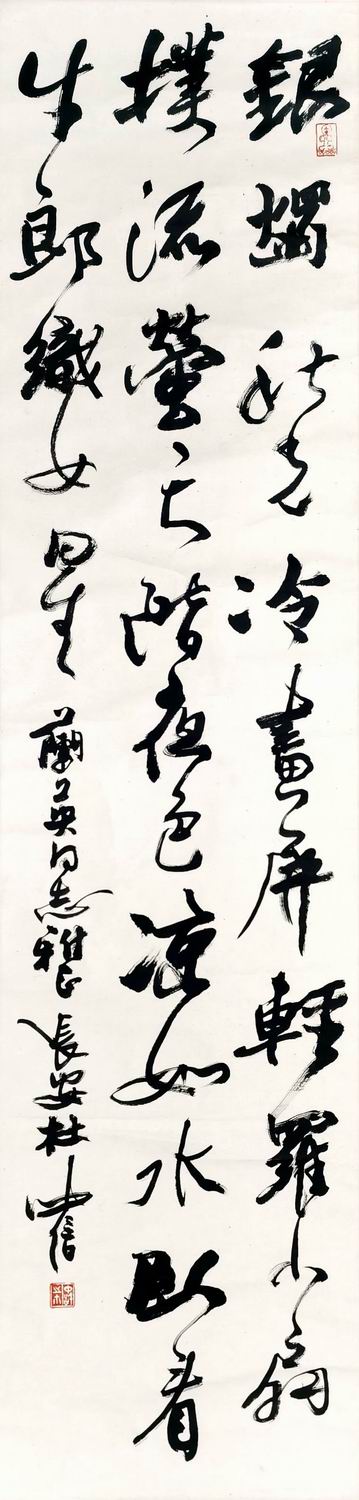 銀燭秋光冷畫屏輕羅小扇
撲流螢天階夜色涼如水臥看
牛郎織女星
蘭英同志雅正 長安杜中信